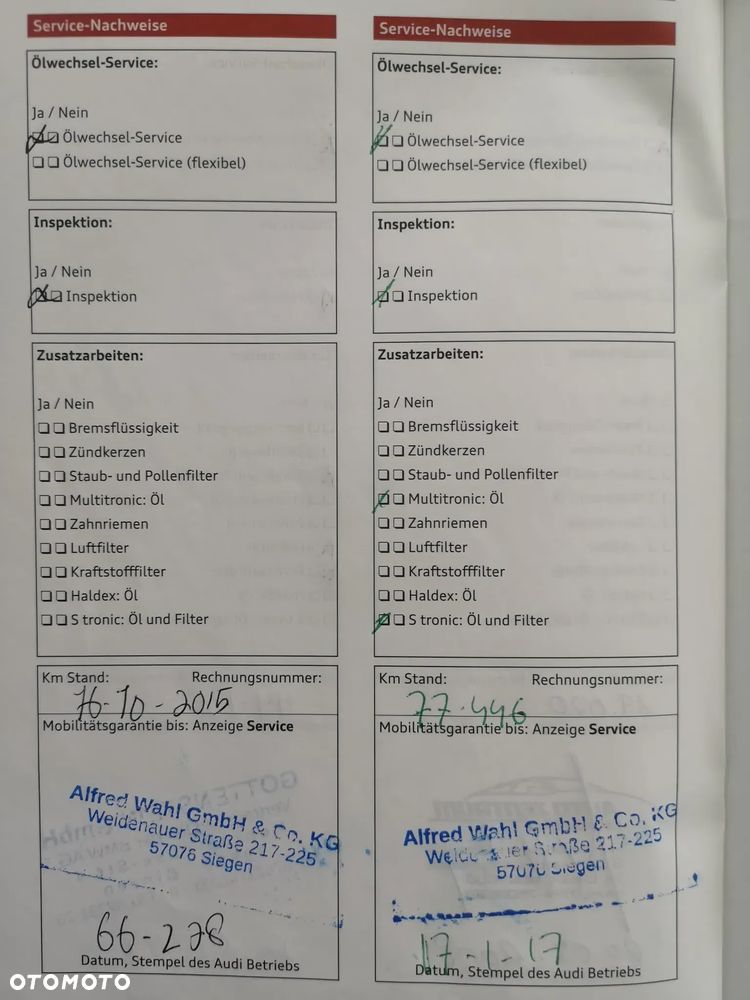 Service-Nachweise
Ölwechsel-Service:
Ja / Nein
Ölwechsel-Service
Ölwechsel-Service (flexibel)
Inspektion:
Ja / Nein
Inspektion
Zusatzarbeiten:
Ja / Nein
Bremsflüssigkeit
Zündkerzen
Staub- und Pollenfilter
Multitronic: Öl
Zahnriemen
Luftfilter
Kraftstofffilter
Haldex: Öl
S tronic: Öl und Filter
Km Stand: Rechnungsnummer:
16-10-2015
Mobilitätsgarantie bis: Anzeige Service
Alfred Wahl GmbH & Co. KG
Weidenauer Straße 217-225
57076 Siegen
66-278
Datum, Stempel des Audi Betriebs
Service-Nachweise
Ölwechsel-Service:
Ja / Nein
Ölwechsel-Service
Ölwechsel-Service (flexibel)
Inspektion:
Ja / Nein
Inspektion
Zusatzarbeiten:
Ja / Nein
Bremsflüssigkeit
Zündkerzen
Staub- und Pollenfilter
Multitronic: Öl
Zahnriemen
Luftfilter
Kraftstofffilter
Haldex: Öl
S tronic: Öl und Filter
Km Stand: Rechnungsnummer:
77.446
Mobilitätsgarantie bis: Anzeige Service
Alfred Wahl GmbH & Co. KG
Weidenauer Straße 217-225
57076 Siegen
17-1-17
Datum, Stempel des Audi Betriebs
OTOMOTO